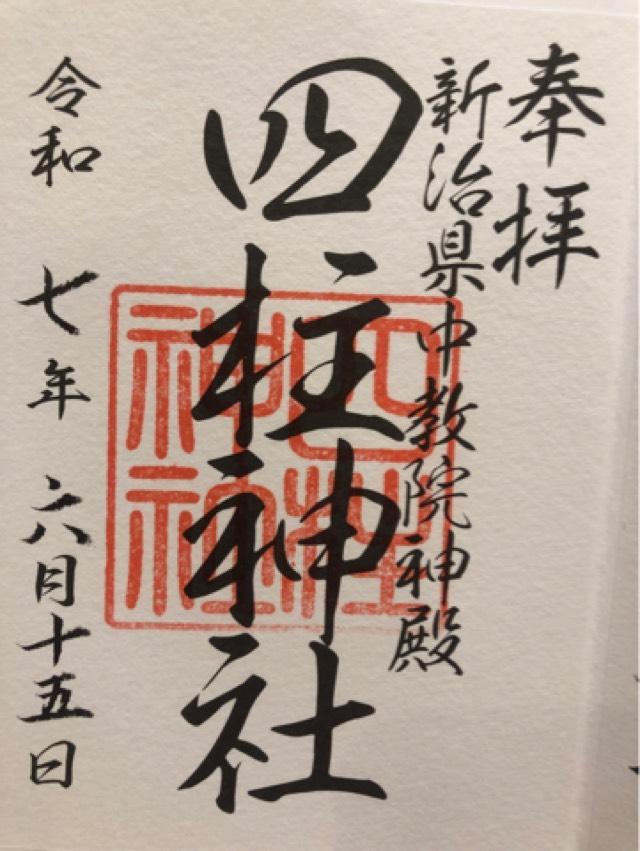 奉拝
新治県中教院神殿
四柱神社
四柱
神社
令和 七年 六月十五日